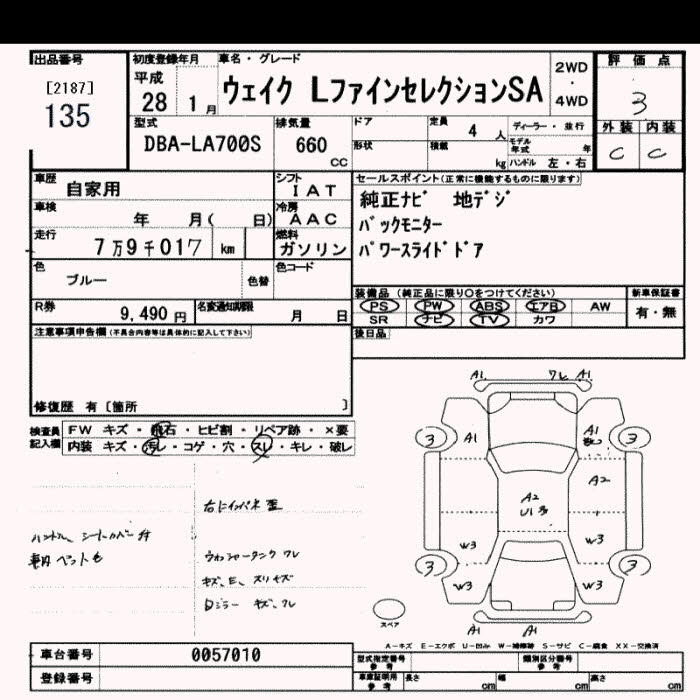 出品番号 初度登録年月 車名・グレード 評価点
[2187] 平成 2WD
135 28 1月 ウェイク LファインセレクションSA ・ 3
4WD
型式 排気量 ドア 定員 4人 ディーラー・並行 外装 内装
DBA-LA700S 660 CC 形状 積載 kg モデル年式 年 C C
ハンドル 左・右
車歴 自家用 シフト IAT セールスポイント(正常に機能するものに限ります)
車検 年 月( 日) 冷房 AAC 純正ナビ 地デジ
走行 7万9千017 km 燃料 ガソリン バックモニター
パワースライドドア
色 ブルー 色替 色コード
装備品(純正品に限り○をつけてください) 新車保証書
R券 9,490円 名変通知期限 月 日 PS PW ABS エアB AW 有・無
SR ナビ TV カワ
注意事項申告欄(不具合内容等は具体的に記入して下さい) 後日品
修復歴 有[箇所 ]
検査員記入欄 FW キズ・飛石・ヒビ割・リペア跡・×要
内装 キズ・汚レ・コゲ・穴・スレ・キレ・破レ
A1 ワレ A1
3 A1 A1 3
A2
A2
U1多
W3 W3
3 3
W3 W3
A1 A1
右にインパネ
ハンドル シートカバー
ペット毛
ウォッシャータンク ワレ
キズ、E、スリキズ
ミラー キズ、ワレ
スペア
A-キズ E-エクボ U-凹み W-補修跡 S-サビ C-腐食 XX-交換済
車台番号 0057010 型式指定番号 参考 類別区分番号 参考
登録番号 車庫証明用 参考 長さ cm 幅 cm 高さ cm